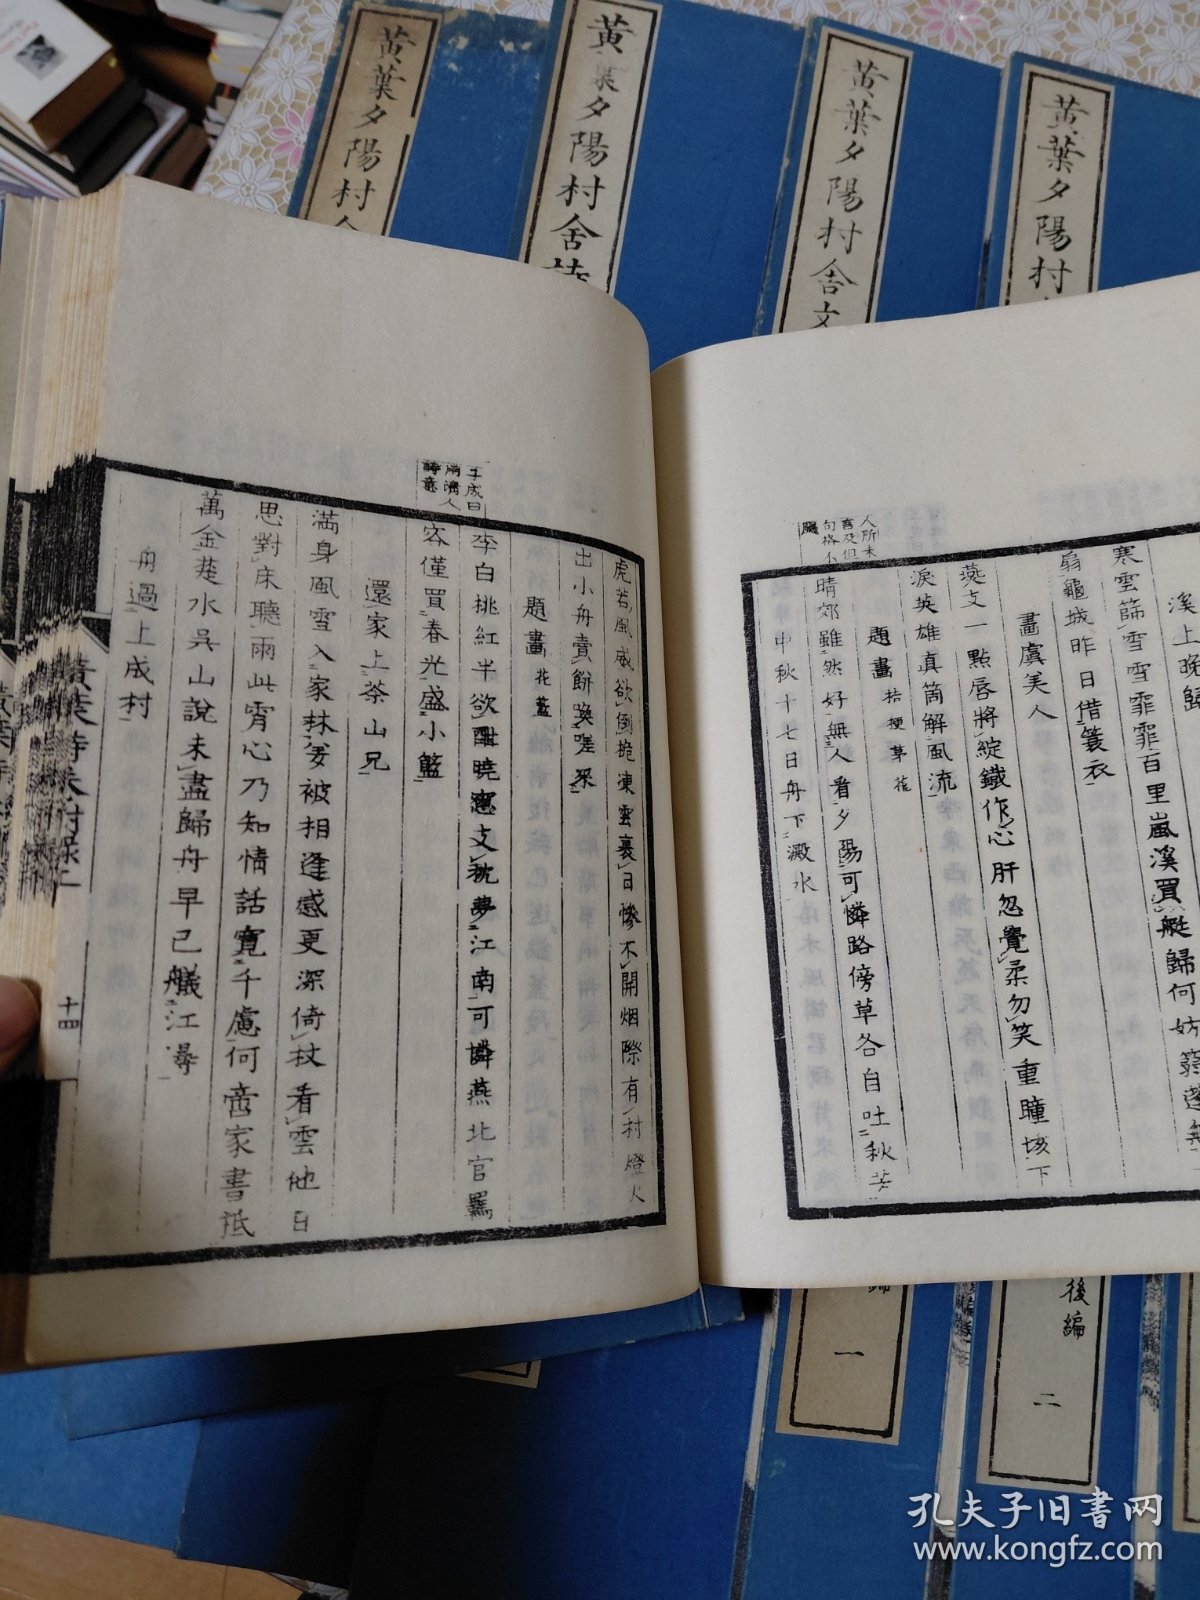 黃葉夕陽村
黃葉夕陽村舍詩
黃葉夕陽村舍文
黃葉夕陽村
溪上晚歸
寒雲篩雪雪霏霏百里嵐溪買艇歸何妨窮蓬無
扇龜城昨日借簑衣
畫虞美人
一點唇將綻鐵作心肝忽覺柔勿笑重瞳垓下
淚英雄真箇解風流
題畫 桔梗草花
晴郊雖然好無人看夕陽可憐路傍草各自吐秋芳
中秋十七日舟下澱水
人所未
言及但
句格小
虎若風威欲倒掩凍雲裏日慘不開烟際有村燈火
出小舟賣餅
題畫 花籃
李白桃紅半欲酣曉窻支枕夢江南可憐燕北官羈
客僅買春光盛小籃
子成曰
兩溝人
詩意
還家上茶山兄
滿身風雪入家林姜被相逢感更深倚杖看雲他日
思對床聽雨此宵心乃知情話寬千慮何啻家書抵
萬金楚水吳山說未盡歸舟早已艤江潯
舟過上成村
黃葉詩
十四
一
後編
二
孔夫子旧书网
www.kongfz.com